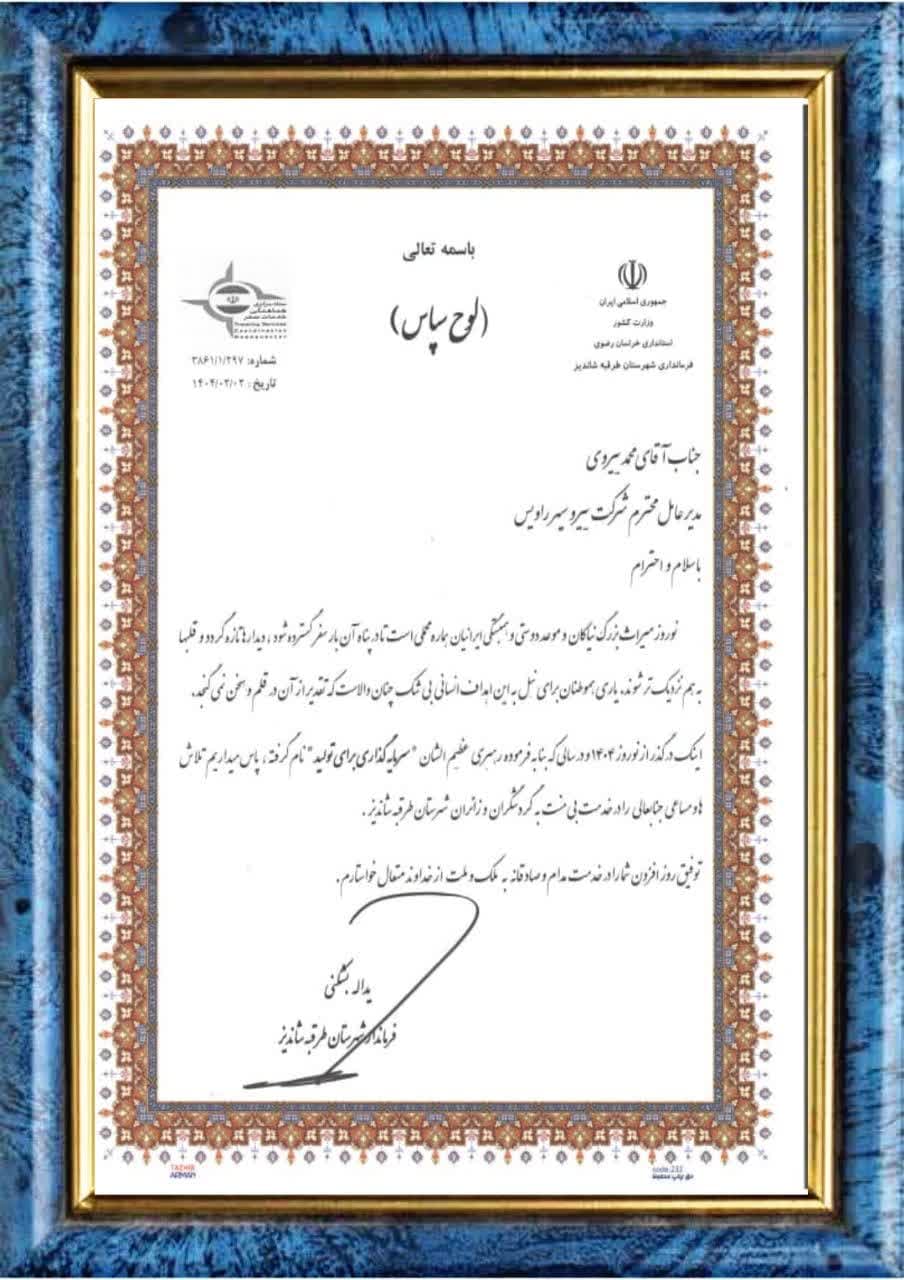 باسمه تعالی
(لوح سپاس)
جمهوری اسلامی ایران
وزارت کشور
استانداری خراسان رضوی
فرمانداری شهرستان طرقبه شاندیز
ستاد مرکزی
هماهنگی
خدمات سفر
Traveling Services
Coordination
Headquarter
شماره: ۳۸۶۱/۱/۲۹۷
تاریخ : ۱۴۰۴/۰۲/۰۲
جناب آقای محمد بیروی
مدیرعامل محترم شرکت بیرو سپهر راویس
باسلام و احترام
نوروز میراث بزرگ نیاکان و موعد دوستی و همبستگی ایرانیان بهاره محملی است تا در پناه آن بار سفر گسترده شود، دیدارها تازه گردد و قلبها
به هم نزدیک تر شوند. یاری هموطنان برای نیل به این اهداف انسانی بی شک چنان والاست که تقدیر از آن در قلم و سخن نمی گنجد.
اینک در گذر از نوروز ۱۴۰۴ و در سالی که بنا به فرموده رهبری عظیم الشان "سرمایه گذاری برای تولید" نام گرفته، پاس میداریم تلاش
ها و مساعی جنابعالی را در خدمت بی منت به گردشگران و زائران شهرستان طرقبه شاندیز.
توفیق روز افزون شما را در خدمت مدام و صادقانه به ملک و ملت از خداوند متعال خواستارم.
یداله بشکنی
فرماندار شهرستان طرقبه شاندیز
TAZHIB
ARMAN
code:232
حق چاپ محفوظ